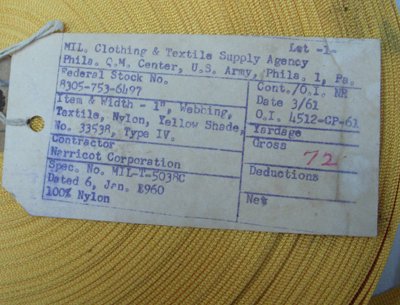 MIL. Clothing & Textile Supply Agency Lot -1-
Phila. Q.M. Center, U.S. Army, Phila. 1, Pa.
Federal Stock No.
8305-753-6497
Item & Width - 1", Webbing,
Textile, Nylon, Yellow Shade,
No. 33538, Type IV.
Contractor
Narricot Corporation
Spec. No. MIL-T-5038C
Dated 6, Jan. 1960
100% Nylon
Cont./O.I. NR
Date 3/61
O.I. 4512-CP-61
Yardage
Gross 72
Deductions
Net